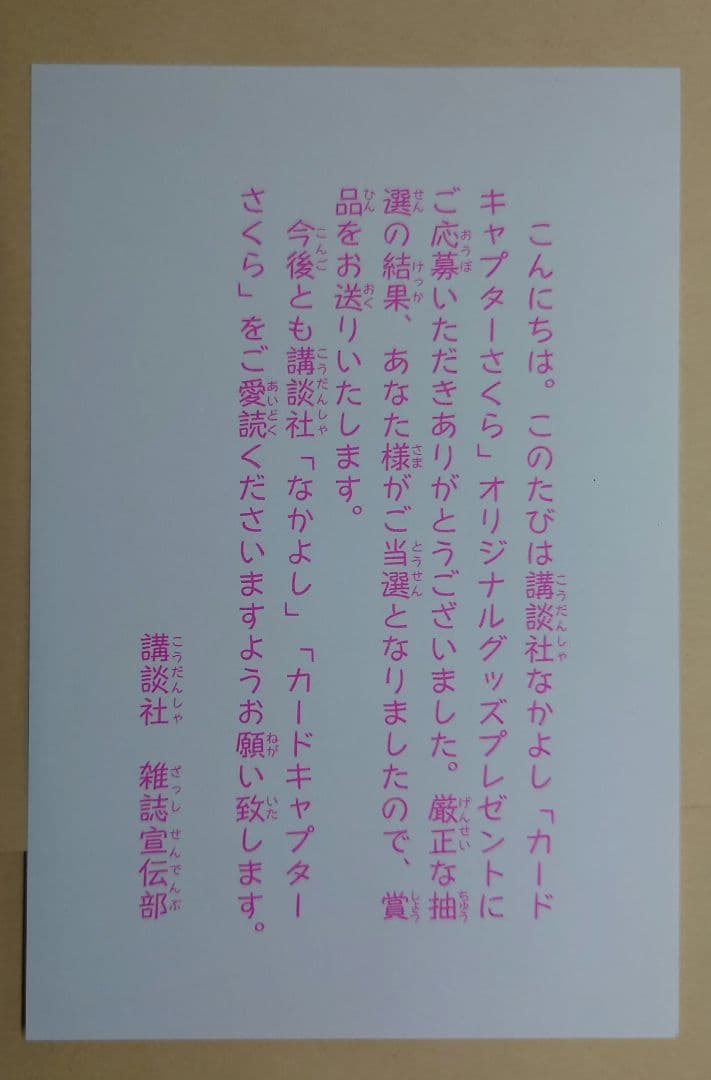 こんにちは。このたびは講談社なかよし「カード
キャプターさくら」オリジナルグッズプレゼントに
ご応募いただきありがとうございました。厳正な抽
選の結果、あなた様がご当選となりましたので、賞
品をお送りいたします。
今後とも講談社「なかよし」「カードキャプター
さくら」をご愛読くださいますようお願い致します。
講談社　雑誌宣伝部